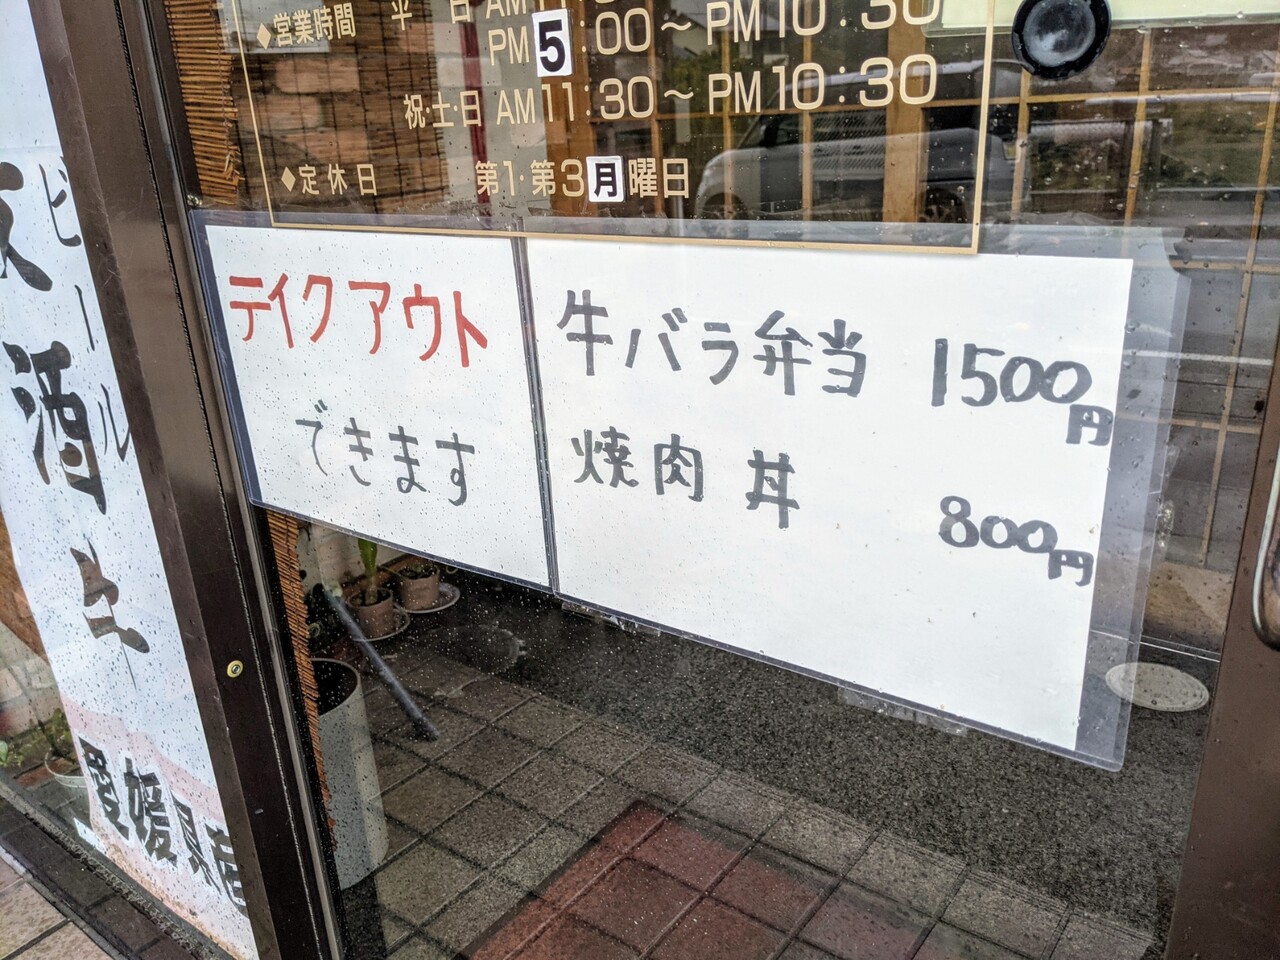 ◆営業時間 平 日 AM11:
PM5:00～PM10:30
祝・土・日 AM11:30～PM10:30
◆定休日 第1・第3月曜日
テイクアウト
できます
牛バラ弁当 1500円
焼肉丼 800円
ビール
酒牛
愛媛県産